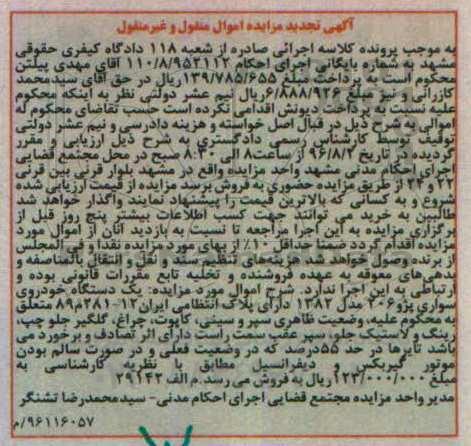 آگهی تجدید مزایده اموال منقول و غیرمنقول
به موجب پرونده کلاسه اجرائی صادره از شعبه ۱۱۸ دادگاه کیفری حقوقی
مشهد به شماره بایگانی اجرای احکام ۱۱۰/۸/۹۵۲۱۱۲ آقای مهدی پیلتن
محکوم است به پرداخت مبلغ ۱۳۹/۷۸۵/۶۵۵ریال در حق آقای سیدمحمد
کازرانی و نیز مبلغ ۶/۸۸۸/۹۲۶ریال نیم عشر دولتی نظر به اینکه محکوم
علیه نسبت به پرداخت دیونش اقدامی نکرده است حسب تقاضای محکوم له
اموالی به شرح ذیل در قبال اصل خواسته و هزینه دادرسی و نیم عشر دولتی
توقیف توسط کارشناس رسمی دادگستری به شرح ذیل ارزیابی و مقرر
گردیده در تاریخ ۹۶/۸/۲ از ساعت۸ الی ۸:۳۰ صبح در محل مجتمع قضایی
اجرای احکام مدنی مشهد واحد مزایده واقع در مشهد بلوار قرنی بین قرنی
۲۲ و ۲۴ از طریق مزایده حضوری به فروش برسد مزایده از قیمت ارزیابی شده
شروع و به کسانی که بالاترین قیمت را پیشنهاد نمایند واگذار خواهد شد
طالبین به خرید می توانند جهت کسب اطلاعات بیشتر پنج روز قبل از
برگزاری مزایده به این اجرا مراجعه تا نسبت به بازدید آنان از اموال مورد
مزایده اقدام گردد ضمنا حداقل ۱۰٪ از بهای مورد مزایده نقدا و فی المجلس
از برنده وصول خواهد شد هزینه‌های تنظیم سند و نقل و انتقال بالمناصفه و
بدهی‌های معوقه به عهده فروشنده و تخلیه تابع مقررات قانونی بوده و
ارتباطی به این اجرا ندارد. شرح اموال مورد مزایده: یک دستگاه خودروی
سواری پژو۲۰۶ مدل ۱۳۸۲ دارای پلاک انتظامی ایران۱۲-۲۸۱م۸۹ متعلق
به محکوم علیه، وضعیت ظاهری سپر و سینی، کاپوت، چراغ، گلگیر جلو چپ،
رینگ و لاستیک جلو، سپر عقب سمت راست دارای اثر تصادف و برخورد می
باشد تایرها در حد ۵۵درصد که در وضعیت فعلی و در صورت سالم بودن
موتور گیربکس و دیفرانسیل مطابق با نظریه کارشناسی به
مبلغ ۱۲۳/۰۰۰/۰۰۰ ریال به فروش می رسد.م الف ۲۹۱۴۲
مدیر واحد مزایده مجتمع قضایی اجرای احکام مدنی- سیدمحمدرضا تشنگر
۹۶۱۱۶۰۵۷/م